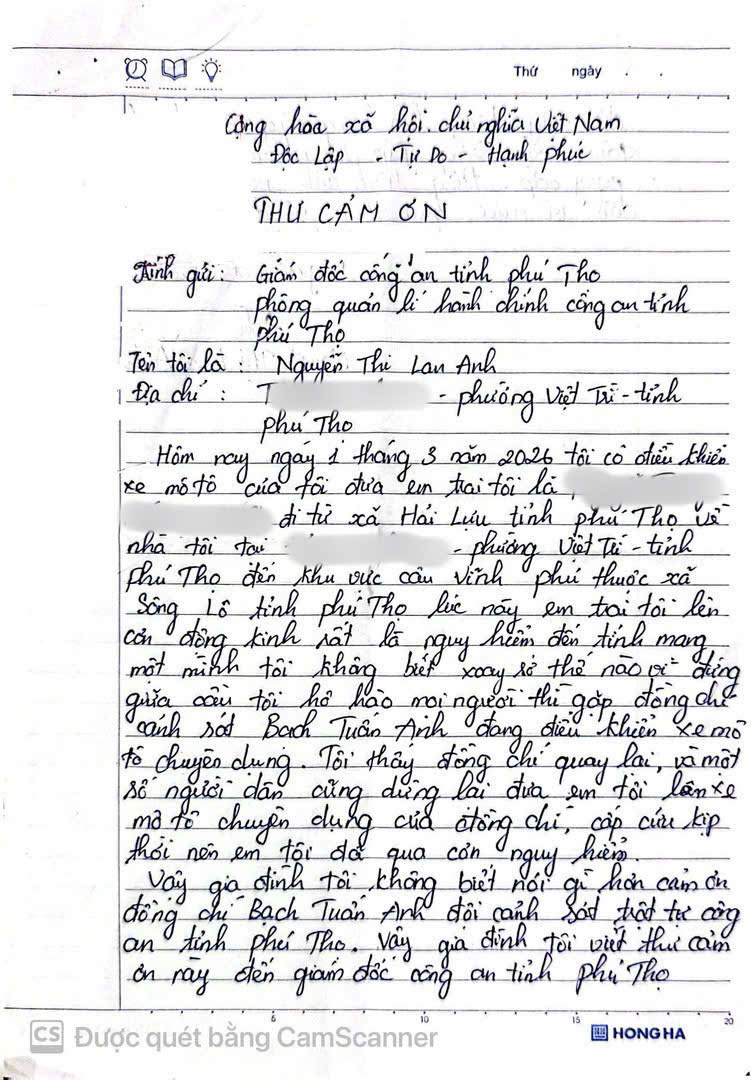 Thứ ngày
Cộng hòa xã hội chủ nghĩa Việt Nam
Độc Lập - Tự Do - Hạnh phúc
THƯ CẢM ƠN
Kính gửi: Giám đốc công an tỉnh phú Thọ
phòng quản lí hành chính công an tỉnh
Phú Thọ
Tên tôi là : Nguyễn Thị Lan Anh
Địa chỉ : T - phường Việt Trì - tỉnh
phú Thọ
Hôm nay ngày 1 tháng 3 năm 2026 tôi có điều khiển
xe mô tô của tôi đưa em trai tôi là
đi từ xã Hải Lựu tỉnh phú Thọ về
nhà tôi tại - phường Việt Trì - tỉnh
phú Thọ đến khu vực cầu Vĩnh phú thuộc xã
Sông Lô tỉnh phú Thọ lúc này em trai tôi lên
cơn động kinh rất là nguy hiểm đến tính mạng
một mình tôi không biết xoay sở thế nào vì đứng
giữa cầu tôi hô hào mọi người thì gặp đồng chí
cảnh sát Bạch Tuấn Anh đang điều khiển xe mô
tô chuyên dụng. Tôi thấy đồng chí quay lại, và một
số người dân cũng dừng lại đưa em tôi lên xe
mô tô chuyên dụng của đồng chí, cấp cứu kịp
thời nên em tôi đã qua cơn nguy hiểm.
Vậy gia đình tôi không biết nói gì hơn cảm ơn
đồng chí Bạch Tuấn Anh đội cảnh sát trật tự công
an tỉnh phú Thọ. Vậy gia đình tôi viết thư cảm
ơn này đến giám đốc công an tỉnh phú Thọ
5 10 15 20
CS Được quét bằng CamScanner
HONG HA